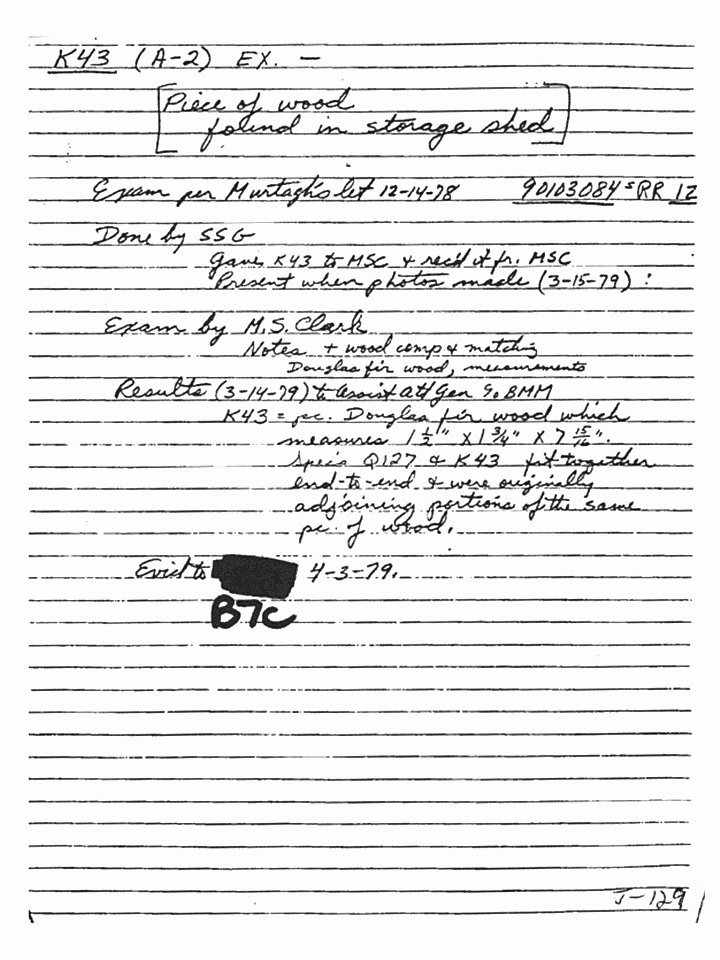 K43 (A-2) EX. —
Piece of wood
found in storage shed
Exam per Murtagh's let 12-14-78 90103084 = RR 12
Done by SSG
Gave K43 to MSC & rec'd it fr. MSC
Present when photos made (3-15-79) :
Exam by M.S. Clark
Notes + wood comp & matching
Douglas fir wood, measurements
Results (3-14-79) to Assist Att Gen BMM
K43 = pc. Douglas fir wood which
measures 1 1/2" X 1 3/4" X 7 15/16".
Spec's Q127 & K43 fit together
end-to-end & were originally
adjoining portions of the same
pc. of wood.
Evid to 4-3-79.
B7C
J-129